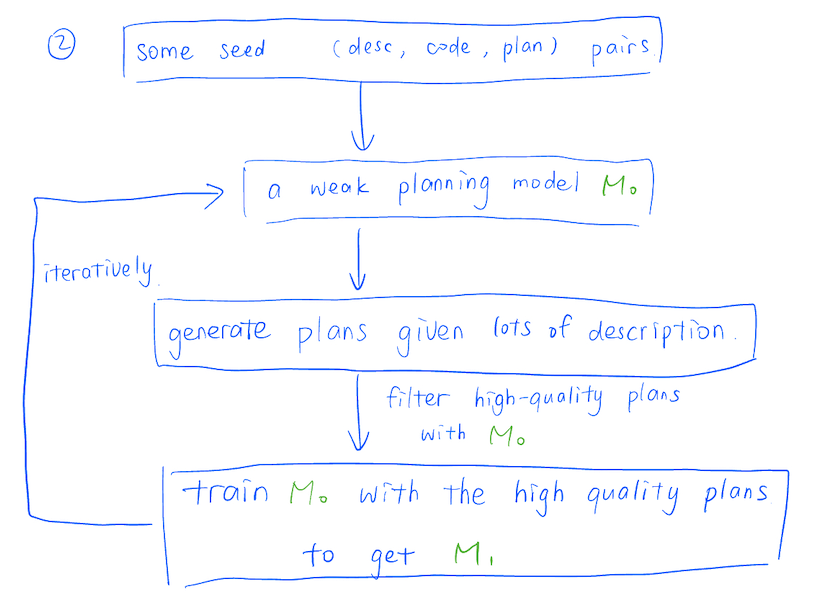 ②
some seed (desc, code, plan) pairs
a weak planning model M₀
iteratively.
generate plans given lots of description.
filter high-quality plans
with M₀
train M₀ with the high quality plans
to get M₁